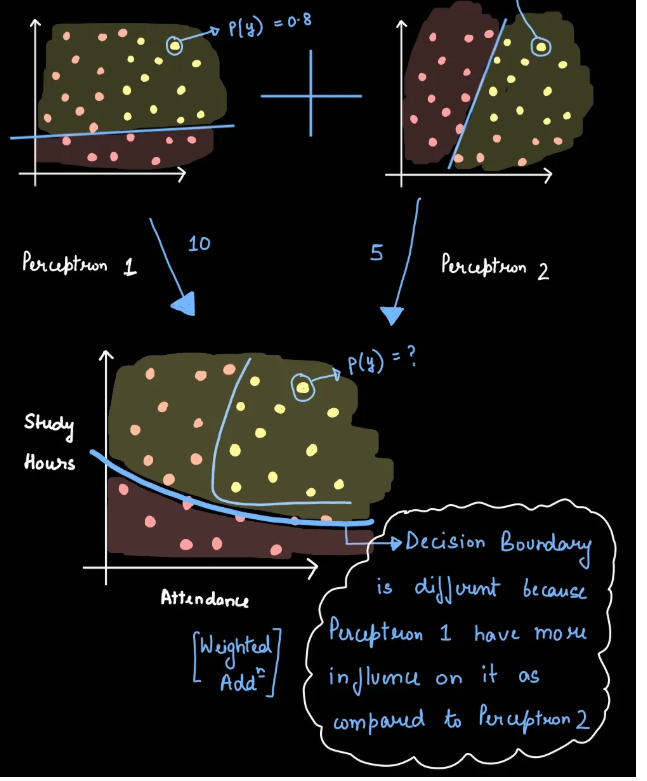 P(y) = 0.8
10
5
Perceptron 1
Perceptron 2
P(y) = ?
Study
Hours
Attendance
[Weighted
Addⁿ]
Decision Boundary
is different because
Perceptron 1 have more
influence on it as
compared to Perceptron 2